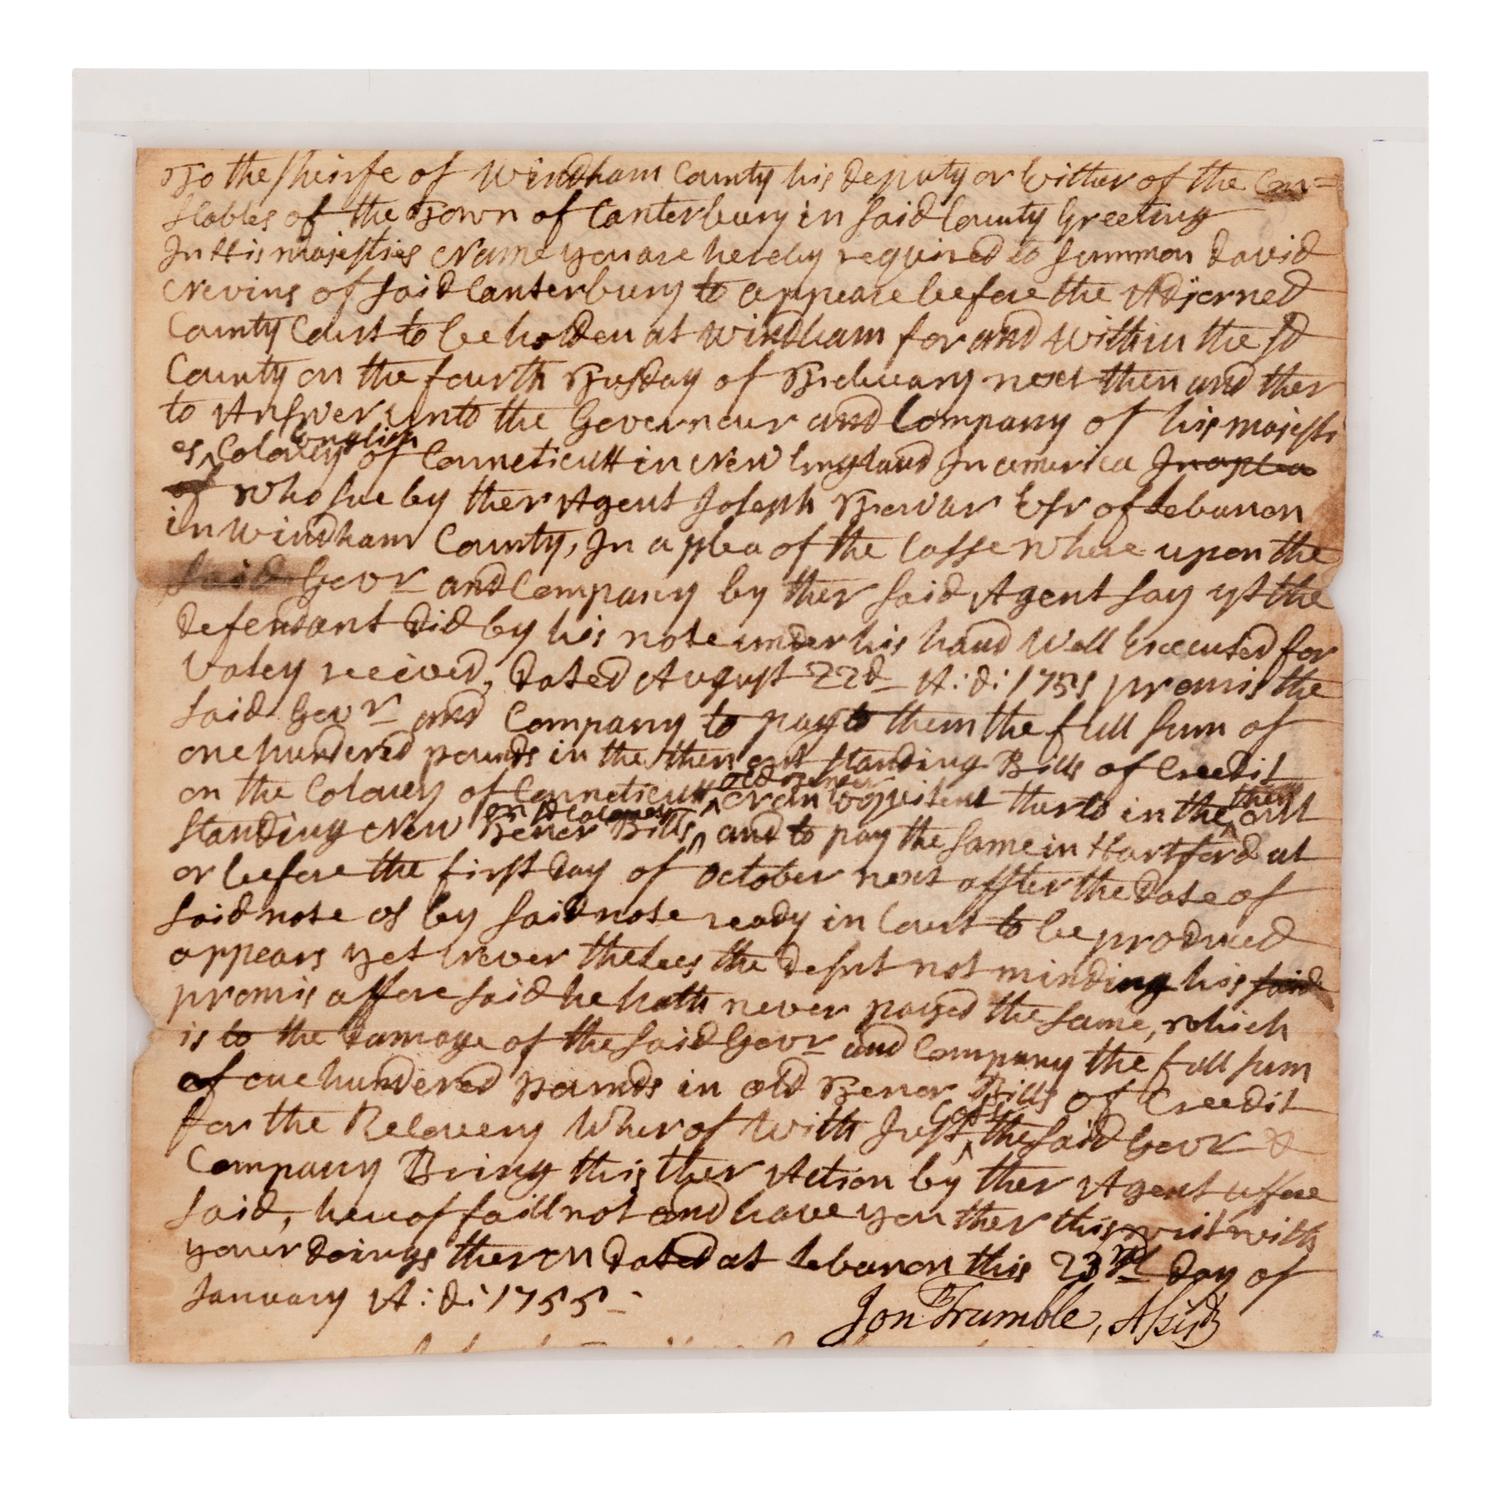 To the sheirfe of Windham County his deputy or Either of the Con=
stables of the Town of Canterbury in said County Greeting
In His majesties Name you are hereby required to summon David
Nevins of said Canterbury to appeare before the Adjorned
County Court to be holden at Windham for and Within the sd
County on the fourth Tusday of February next then and ther
to Answer unto the Governour and Company of his majesti
es English Colony of Conneticutt in New England In america In a plea
of Who sue by ther Agent Joseph Fowlar Esr of Lebanon
in Windham County, In a plea of the Casse Where upon the
said Govr and Company by ther said Agent say yt the
defendant did by his note under his hand Well Executed for
Valey received, dated August 22d A:d: 1751 promis the
said Govr and Company to pay to them the full sum of
one hundered pounds in the then out standing Bills of Creedit
on the Coloney of Conneticutt old tenor or an Equivilent therto in the then out
standing New Tenor Bills on sd Coloney and to pay the same in Hartford at
or before the first day of October next affter the date of
said note as by said note ready in Court to be produced
appears yet never theless the defnt not minding his said
promis affore said he hath never payed the same, which
is to the damage of the said Govr and Company the full sum
of one hundered pounds in old Tenor Bills of Creedit
for the Recovery Wherof With Just Costs the said Govr &
Company Bring this ther Action by ther Agent affore
said, herof faill not and have you ther this writ with
your doings theron dated at Lebanon this 23rd day of
January A:d: 1755
Jonth Trumble, Assist